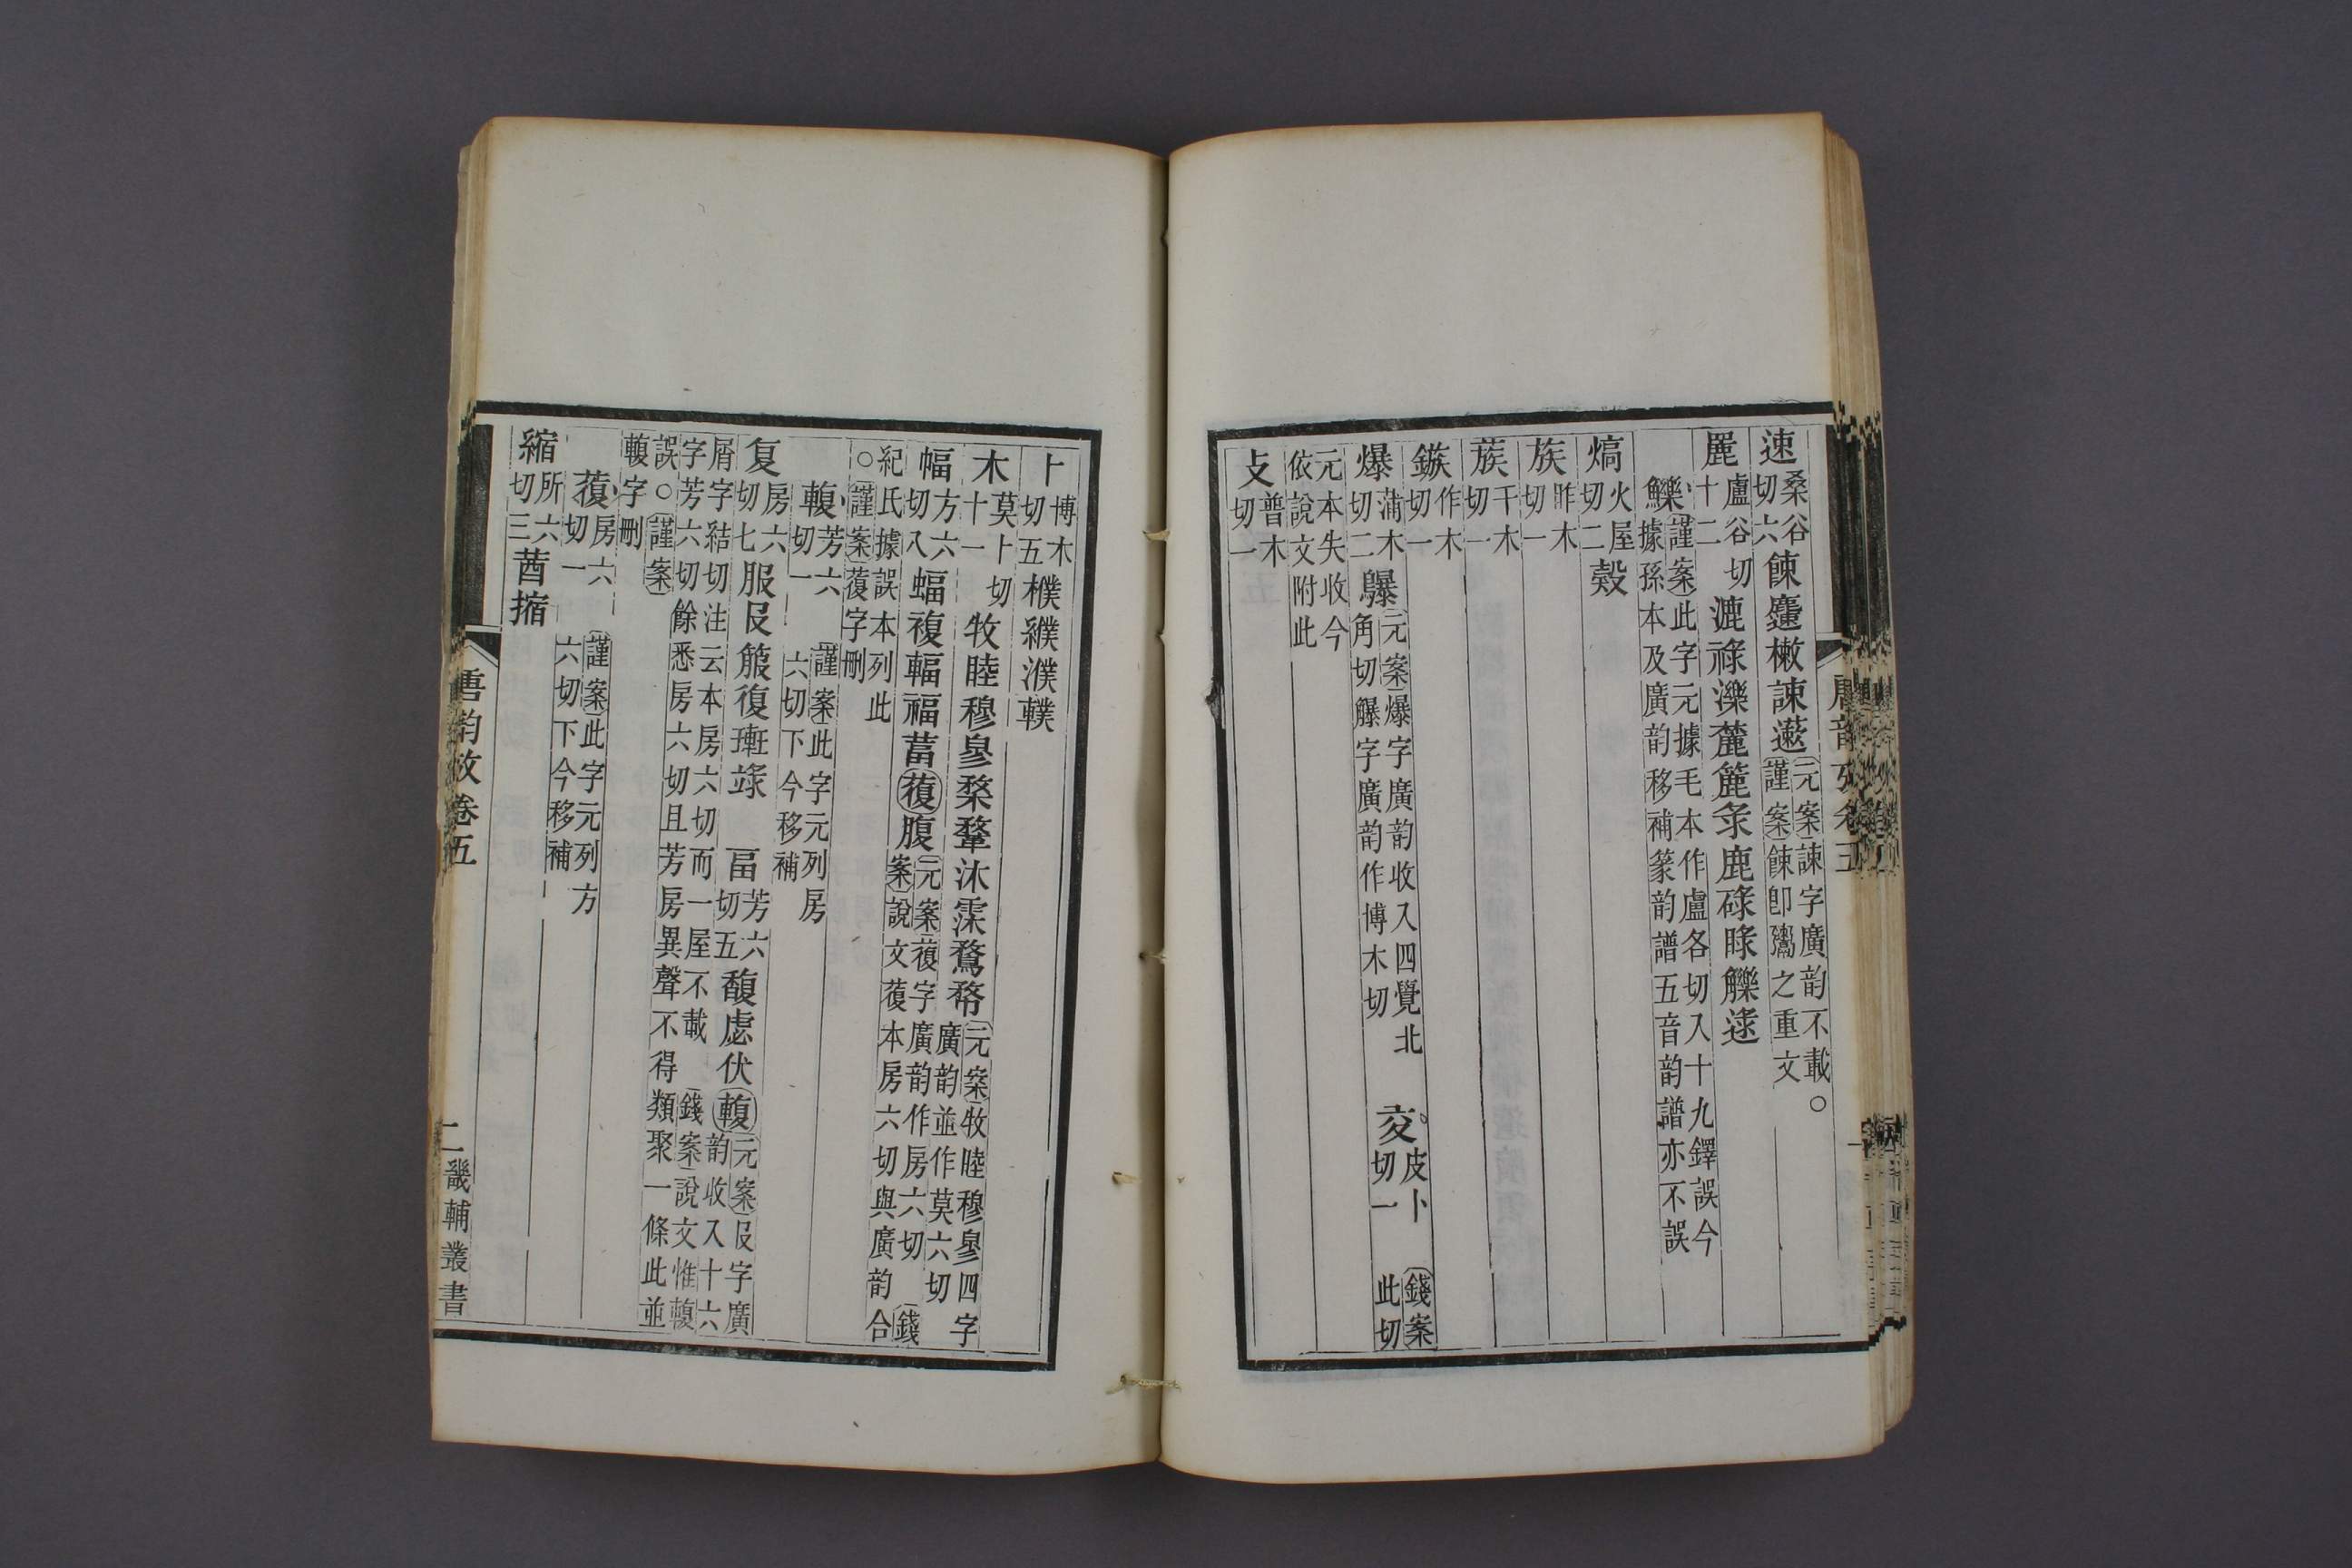 速桑谷切六餗䕱樕諫遬元案諫字廣韵不載○謹案餗卽鬻之重文
麗盧谷切十二漉祿濼麓簏彔鹿碌睩觻逯
鱳謹案此字元據毛本作盧各切入十九鐸誤今據孫本及廣韵移補篆韵譜五音韵譜亦不誤
熇火屋切二㱿
族昨木切一
蔟千木切一
鏃作木切一
爆蒲木切二㿺元案爆字廣韵收入四覺北角切㿺字廣韵作博木切 㚆皮卜切一 錢案此切
元本失收今依說文附此
攴普木切一
卜博木切五樸纀濮轐
木莫卜切十一牧睦穆㣎楘鞪沐霂鶩㡔元案牧睦穆㣎四字廣韵並作莫六切
幅方六切八蝠複輻福葍蕧腹元案蕧字廣韵作房六切 錢案說文蕧本房六切與廣韵合
紀氏據誤本列此○謹案蕧字刪
䡴芳六切一 謹案此字元列房六切下今移補
复房六切七服𠬝箙復㻎䇐 畐芳六切五馥虙伏䡴元案𠬝字廣韵收入十六
屑字結切注云本房六切而一屋不載 錢案說文惟䡴字芳六切餘悉房六切且芳房異聲不得類聚一條此並
誤○謹案䡴字刪
蕧房六切一 謹案此字元列方六切下今移補
縮所六切三茜摍
唐韵攷卷五
二
畿輔叢書